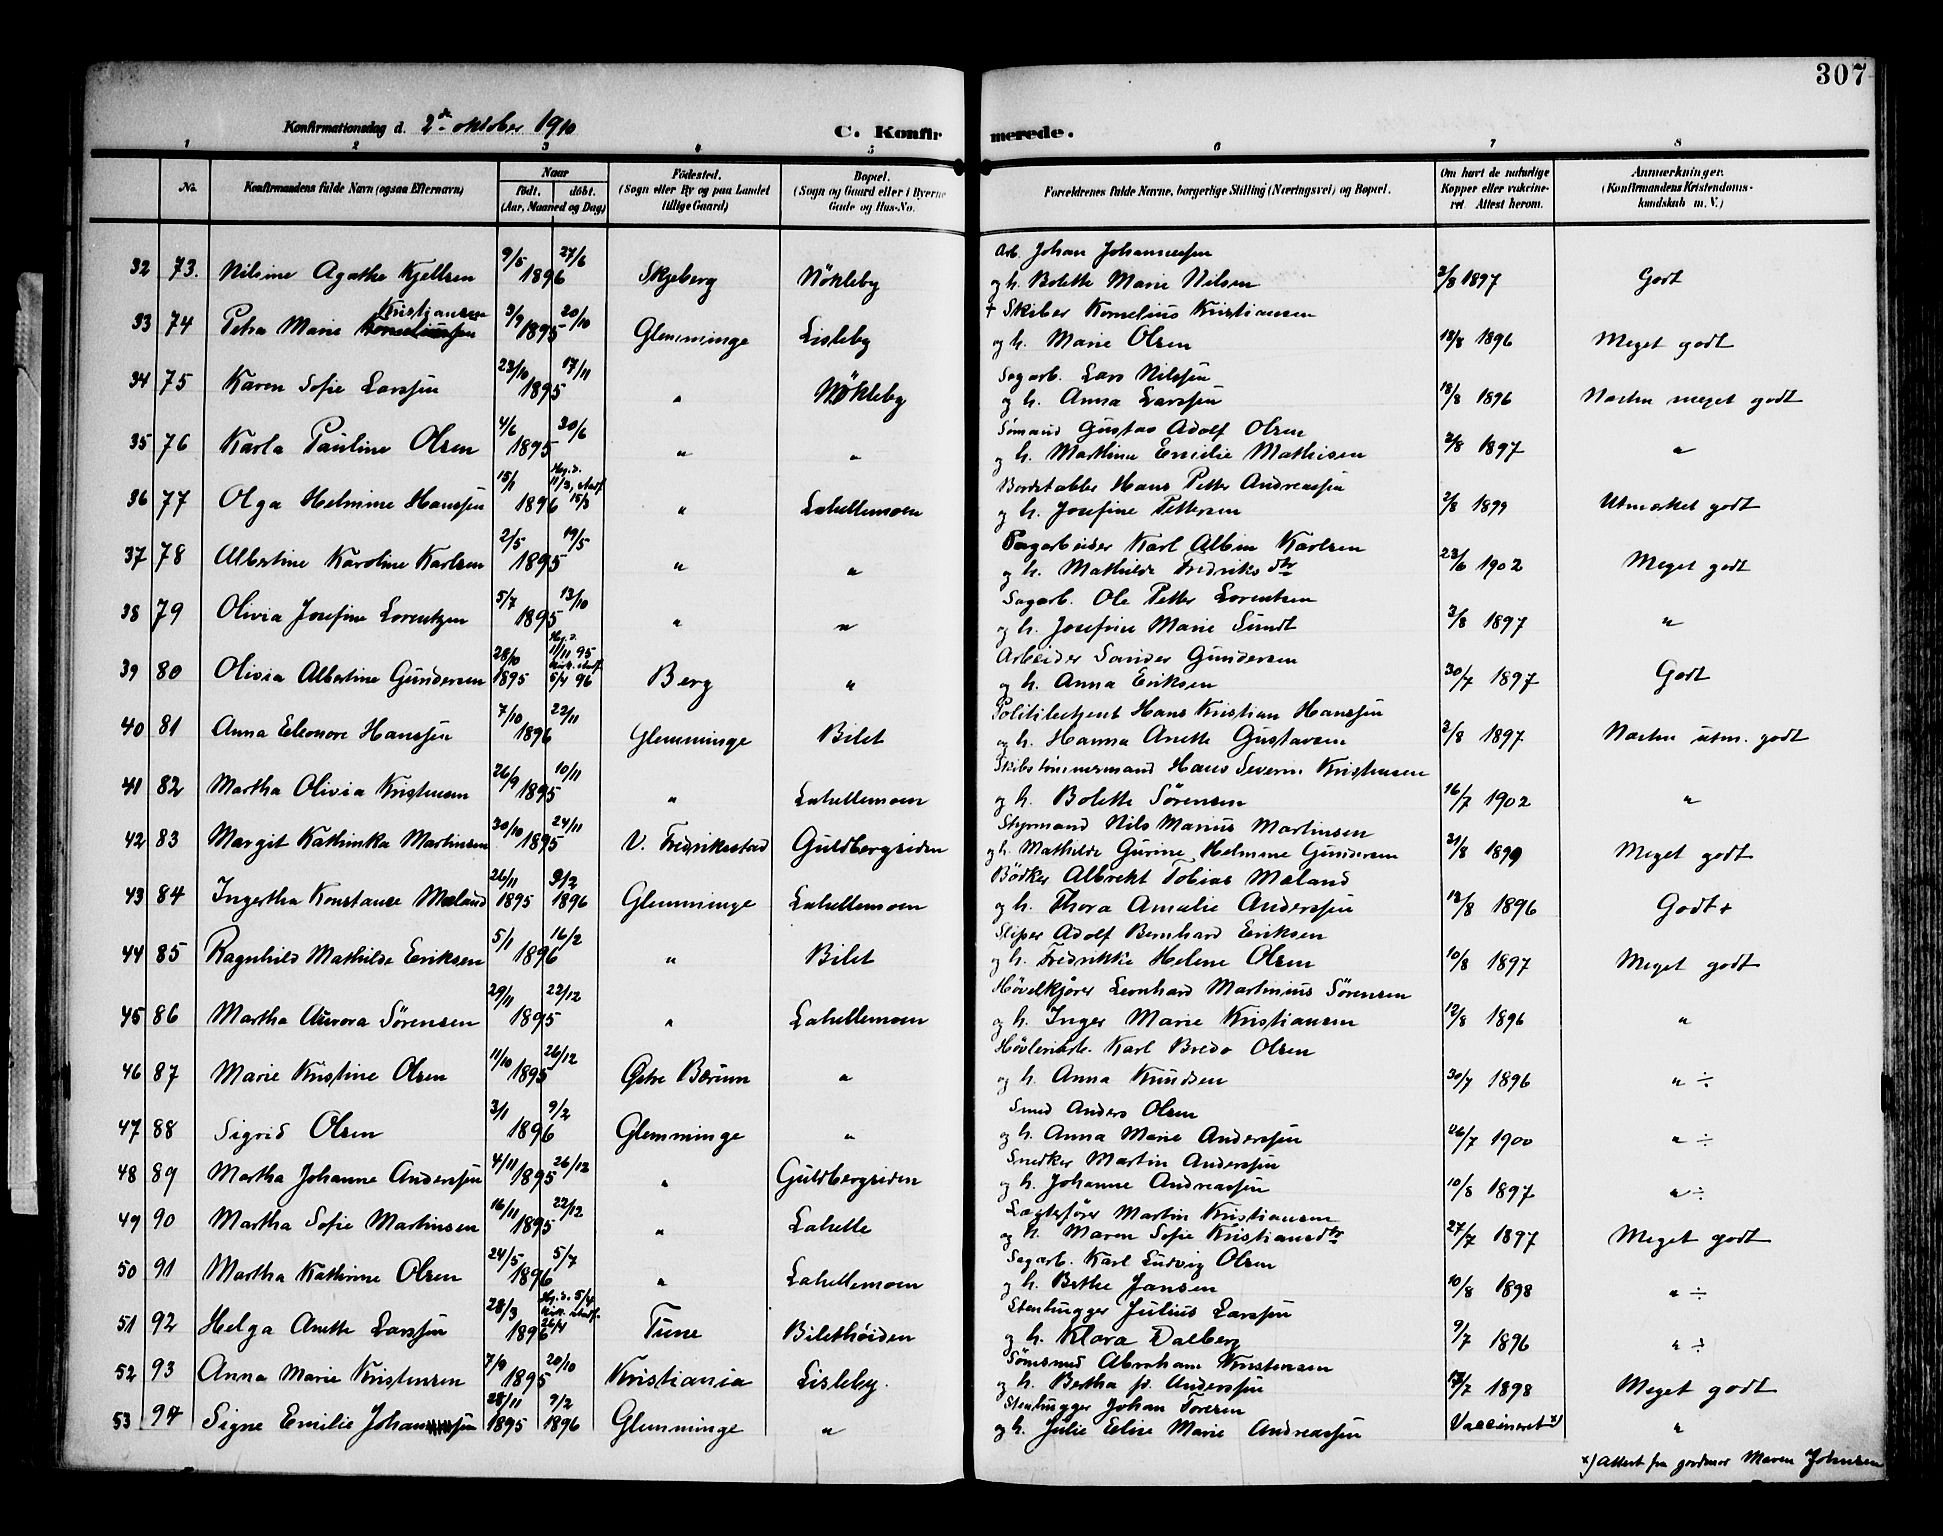 307
Konfirmationsdag d. 2den oktober 1910
C. Konfirmerede.
1 2 3 4 5 6 7 8
No. Konfirmandens fulde Navn (ogsaa Efternavn) Naar født. døbt. (Aar, Maaned og Dag) Fødested. (Sogn eller By og paa Landet tillige Gaard) Bopæl. (Sogn og Gaard eller i Byerne Gade og Hus-No. Forældrenes fulde Navne, borgerlige Stilling (Næringsvei) og Bopæl. Om havt de naturlige Kopper eller vakcineret. Attest herom. Anmærkninger. (Konfirmandens Kristendomskundskab m. V.)
32 73. Nilsine Agathe Kjellsen 9/5 1896 27/6 Skjeberg Nökleby Arb. Johan Johannessen og h. Bolette Marie Nilsen 2/8 1897 Godt
33 74 Petra Marie Kristiansen 3/9 1895 20/10 Glemminge Lisleby + Skiber Kornelius Kristiansen og h. Marie Olsen 18/8 1896 Meget godt
34 75 Karen Sofie Larssen 23/10 1895 17/11 " Nökleby Sagarb. Lars Nilssen og h. Anna Larssen 18/8 1896 Næsten meget godt
35 76 Karla Pauline Olsen 4/6 1895 30/6 " " Sömand Gustav Adolf Olsen og h. Marthine Emilie Mathisen 2/8 1897 "
36 77 Olga Helmine Hanssen 15/1 1896 Hj.d. 11/3, stadf. 15/3 " Lahellemoen Bordstabler Hans Petter Andreassen og h. Josefine Pettersen 2/8 1899 Utmerket godt
37 78 Albertine Karoline Karlsen 2/5 1895 19/5 " " Sagarbeider Karl Albin Karlsen og h. Mathilde Fredriksdtr 23/6 1902 Meget godt
38 79 Olivia Josefine Lorentzen 5/7 1895 13/10 " " Sagarb. Ole Petter Lorentzen og h. Josefine Marie Sundt 3/8 1897 "
39 80 Olivia Albertine Gundersen 28/10 1895 Hj.d. 11/11 95 kirk. stadf. 5/4 96 Berg " Arbeider Sander Gundersen og h. Anna Eriksen 30/7 1897 Godt
40 81 Anna Eleonore Hanssen 7/10 1896 22/11 Glemminge Bilet Politibetjent Hans Kristian Hanssen og h. Hanna Anette Gustavsen 2/8 1897 Næsten utm. godt
41 82 Martha Olivia Kristensen 26/9 1895 10/11 " Lahellemoen Skibstömmermand Hans Severin Kristensen og h. Bolette Sörensen 16/7 1902 "
42 83 Margit Kathinka Martinsen 30/10 1895 24/11 V. Fredrikstad Guldbergsiden Styrmand Nils Marius Martinsen og h. Mathilde Gurine Helmine Gundersen 31/8 1899 Meget godt
43 84 Ingertha Konstanse Mæland 26/11 1895 9/2 1896 Glemminge Lahellemoen Bödker Albrekt Tobias Mæland og h. Thora Amalie Anderssen 12/8 1896 Godt+
44 85 Ragnhild Mathilde Eriksen 5/1 1896 16/2 " Bilet Sliper Adolf Bernhard Eriksen og h. Fredrikke Helene Olsen 10/8 1897 Meget godt
45 86 Martha Aurora Sörensen 29/11 1895 22/12 " Lahellemoen Hövelkjörer Leonhard Martinius Sörensen og h. Inger Marie Kristiansen 12/8 1896 "
46 87 Marie Kristine Olsen 11/10 1895 26/12 Östre Bærum " Hövleriarb. Karl Bredo Olsen og h. Anna Knudsen 30/7 1896 " ÷
47 88 Sigrid Olsen 3/1 1896 9/2 Glemminge " Smed Anders Olsen og h. Anna Marie Anderssen 26/7 1900 " ÷
48 89 Martha Johanne Anderssen 4/11 1895 26/12 " Guldbergsiden Snedker Martin Anderssen og h. Johanne Andreassen 10/8 1897 " ÷
49 90 Martha Sofie Martinsen 16/11 1895 22/12 " Lahelle Lægterförer Martin Kristiansen og h. Maren Sofie Kristiansdtr 27/7 1897 Meget godt
50 91 Martha Kathrine Olsen 24/5 1896 5/7 " Lahellemoen Sagarb. Karl Ludvig Olsen og h. Berthe Jansen 10/8 1898 " ÷
51 92 Helga Anette Larssen 28/3 1896 Hj.d. 5/4 kirk. stadf. 26/4 Tune Bilethöiden Stenhugger Julius Larssen og h. Klara Dalberg 9/7 1896 " ÷
52 93 Anna Marie Kristensen 7/9 1895 20/10 Kristiania Lisleby. Sömsmed Abraham Kristensen og h. Bertha f. Anderssen /7 1898 Meget godt
53 94 Signe Emilie Johanssen 28/11 1895 9/2 1896 Glemminge " Stenhugger Johan Toresen og h. Julie Eline Marie Andreassen Vaccineret x) "
x) Attest fra gordmor Maren Johnsen